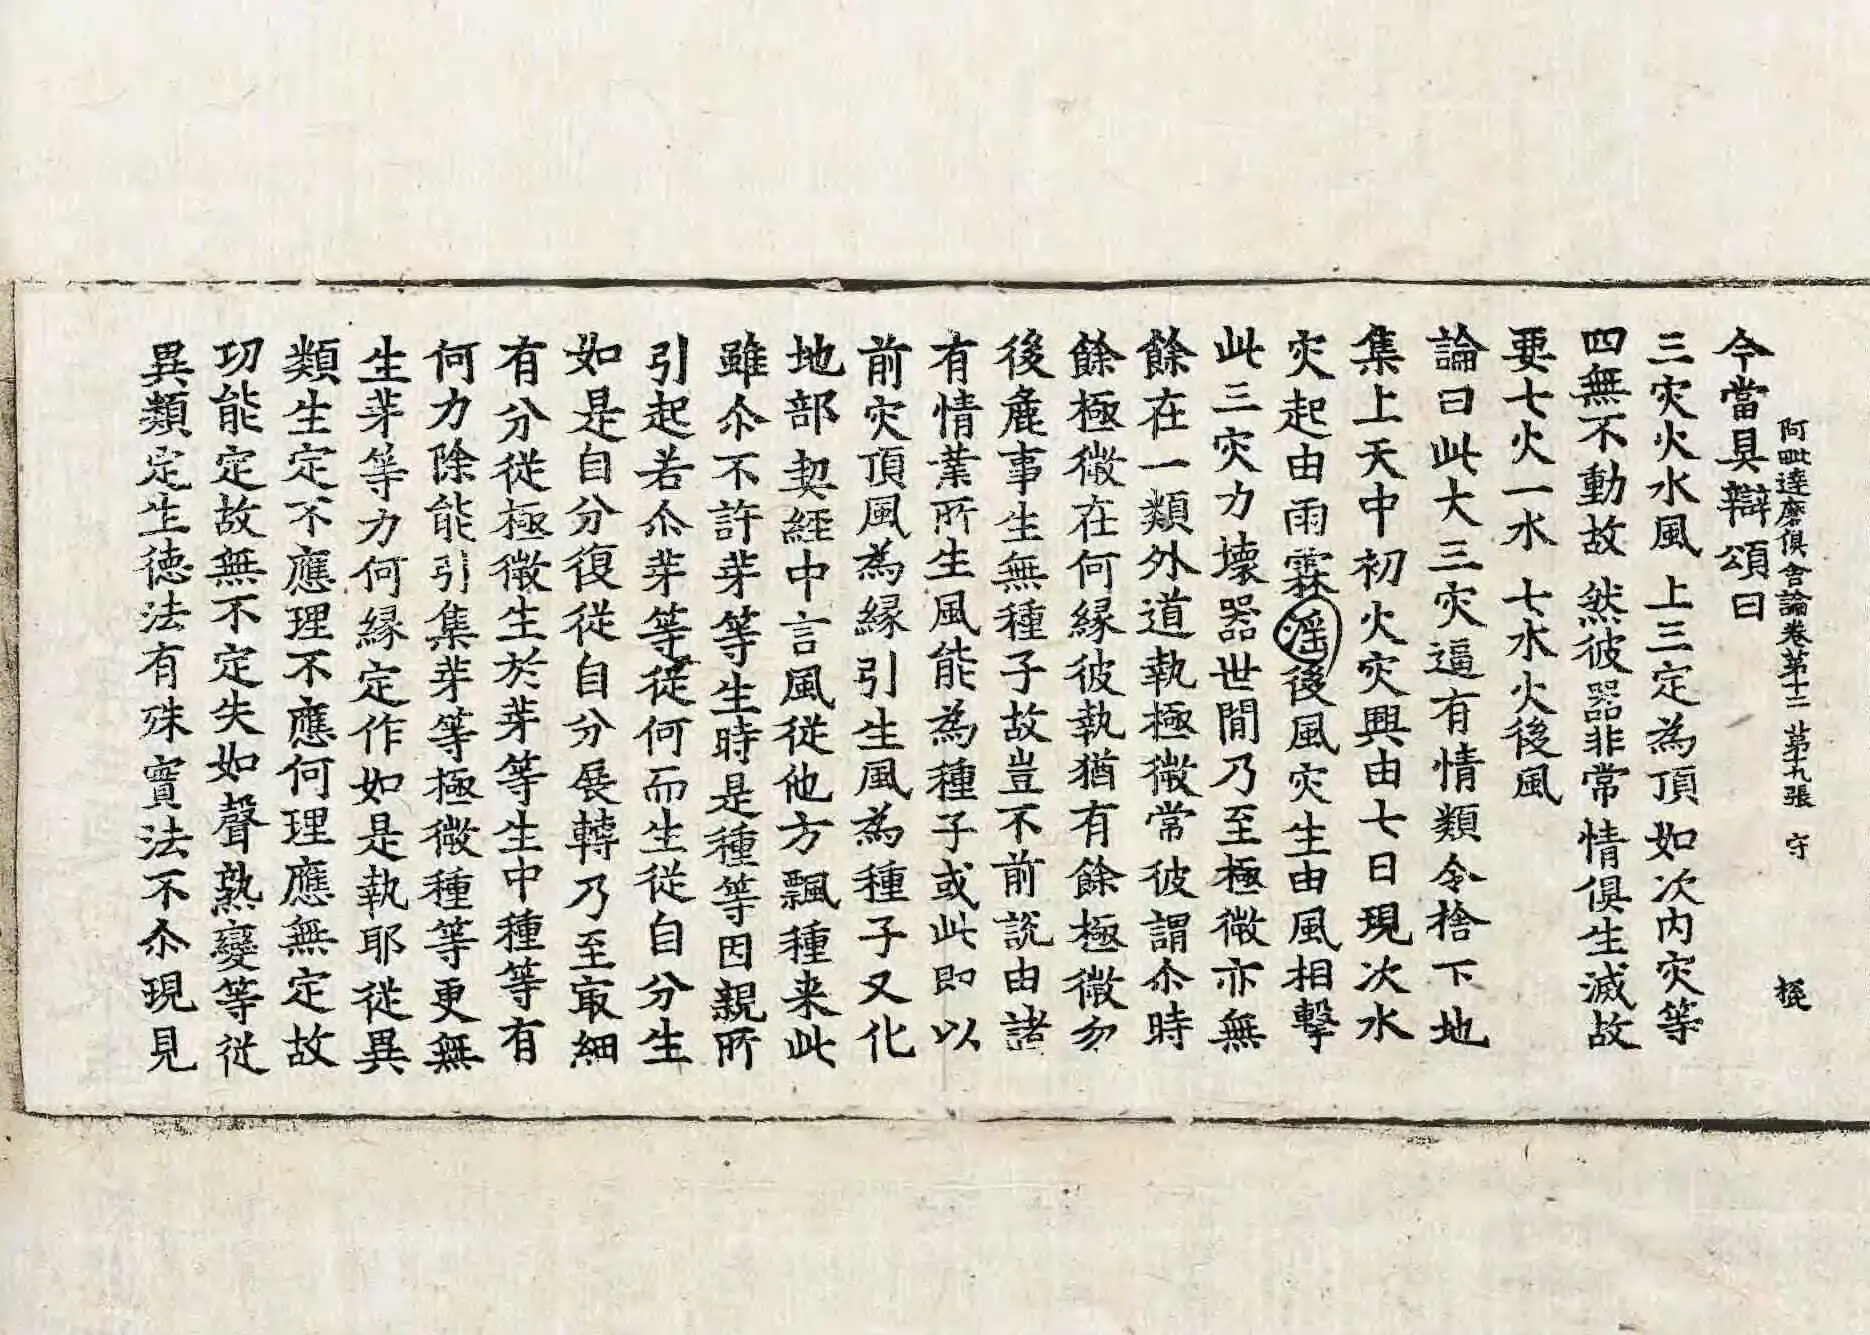 阿毗達磨俱舍論卷第十二 第十九張 守
今當具辯頌曰
三灾火水風 上三定為頂 如次内灾等
四無不動故 然彼器非常 情俱生滅故
要七火一水 七水火後風
論曰此大三灾逼有情類令捨下地
集上天中初火灾興由七日現次水
灾起由雨霖滛後風灾生由風相擊
此三灾力壞器世間乃至極微亦無
餘在一類外道執極微常彼謂尒時
餘極微在何緣彼執猶有餘極微勿
後麁事生無種子故豈不前說由諸
有情業所生風能為種子或此即以
前灾頂風為緣引生風為種子又化
地部契經中言風從他方飄種来此
雖尒不許芽等生時是種等因親所
引起若尒芽等從何而生從自分生
如是自分復從自分展轉乃至㝡細
有分從極微生於芽等生中種等有
何力除能引集芽等極微種等更無
生芽等力何緣定作如是執耶從異
類生定不應理不應何理應無定故
功能定故無不定失如聲熟變等從
異類定生德法有殊實法不尒現見